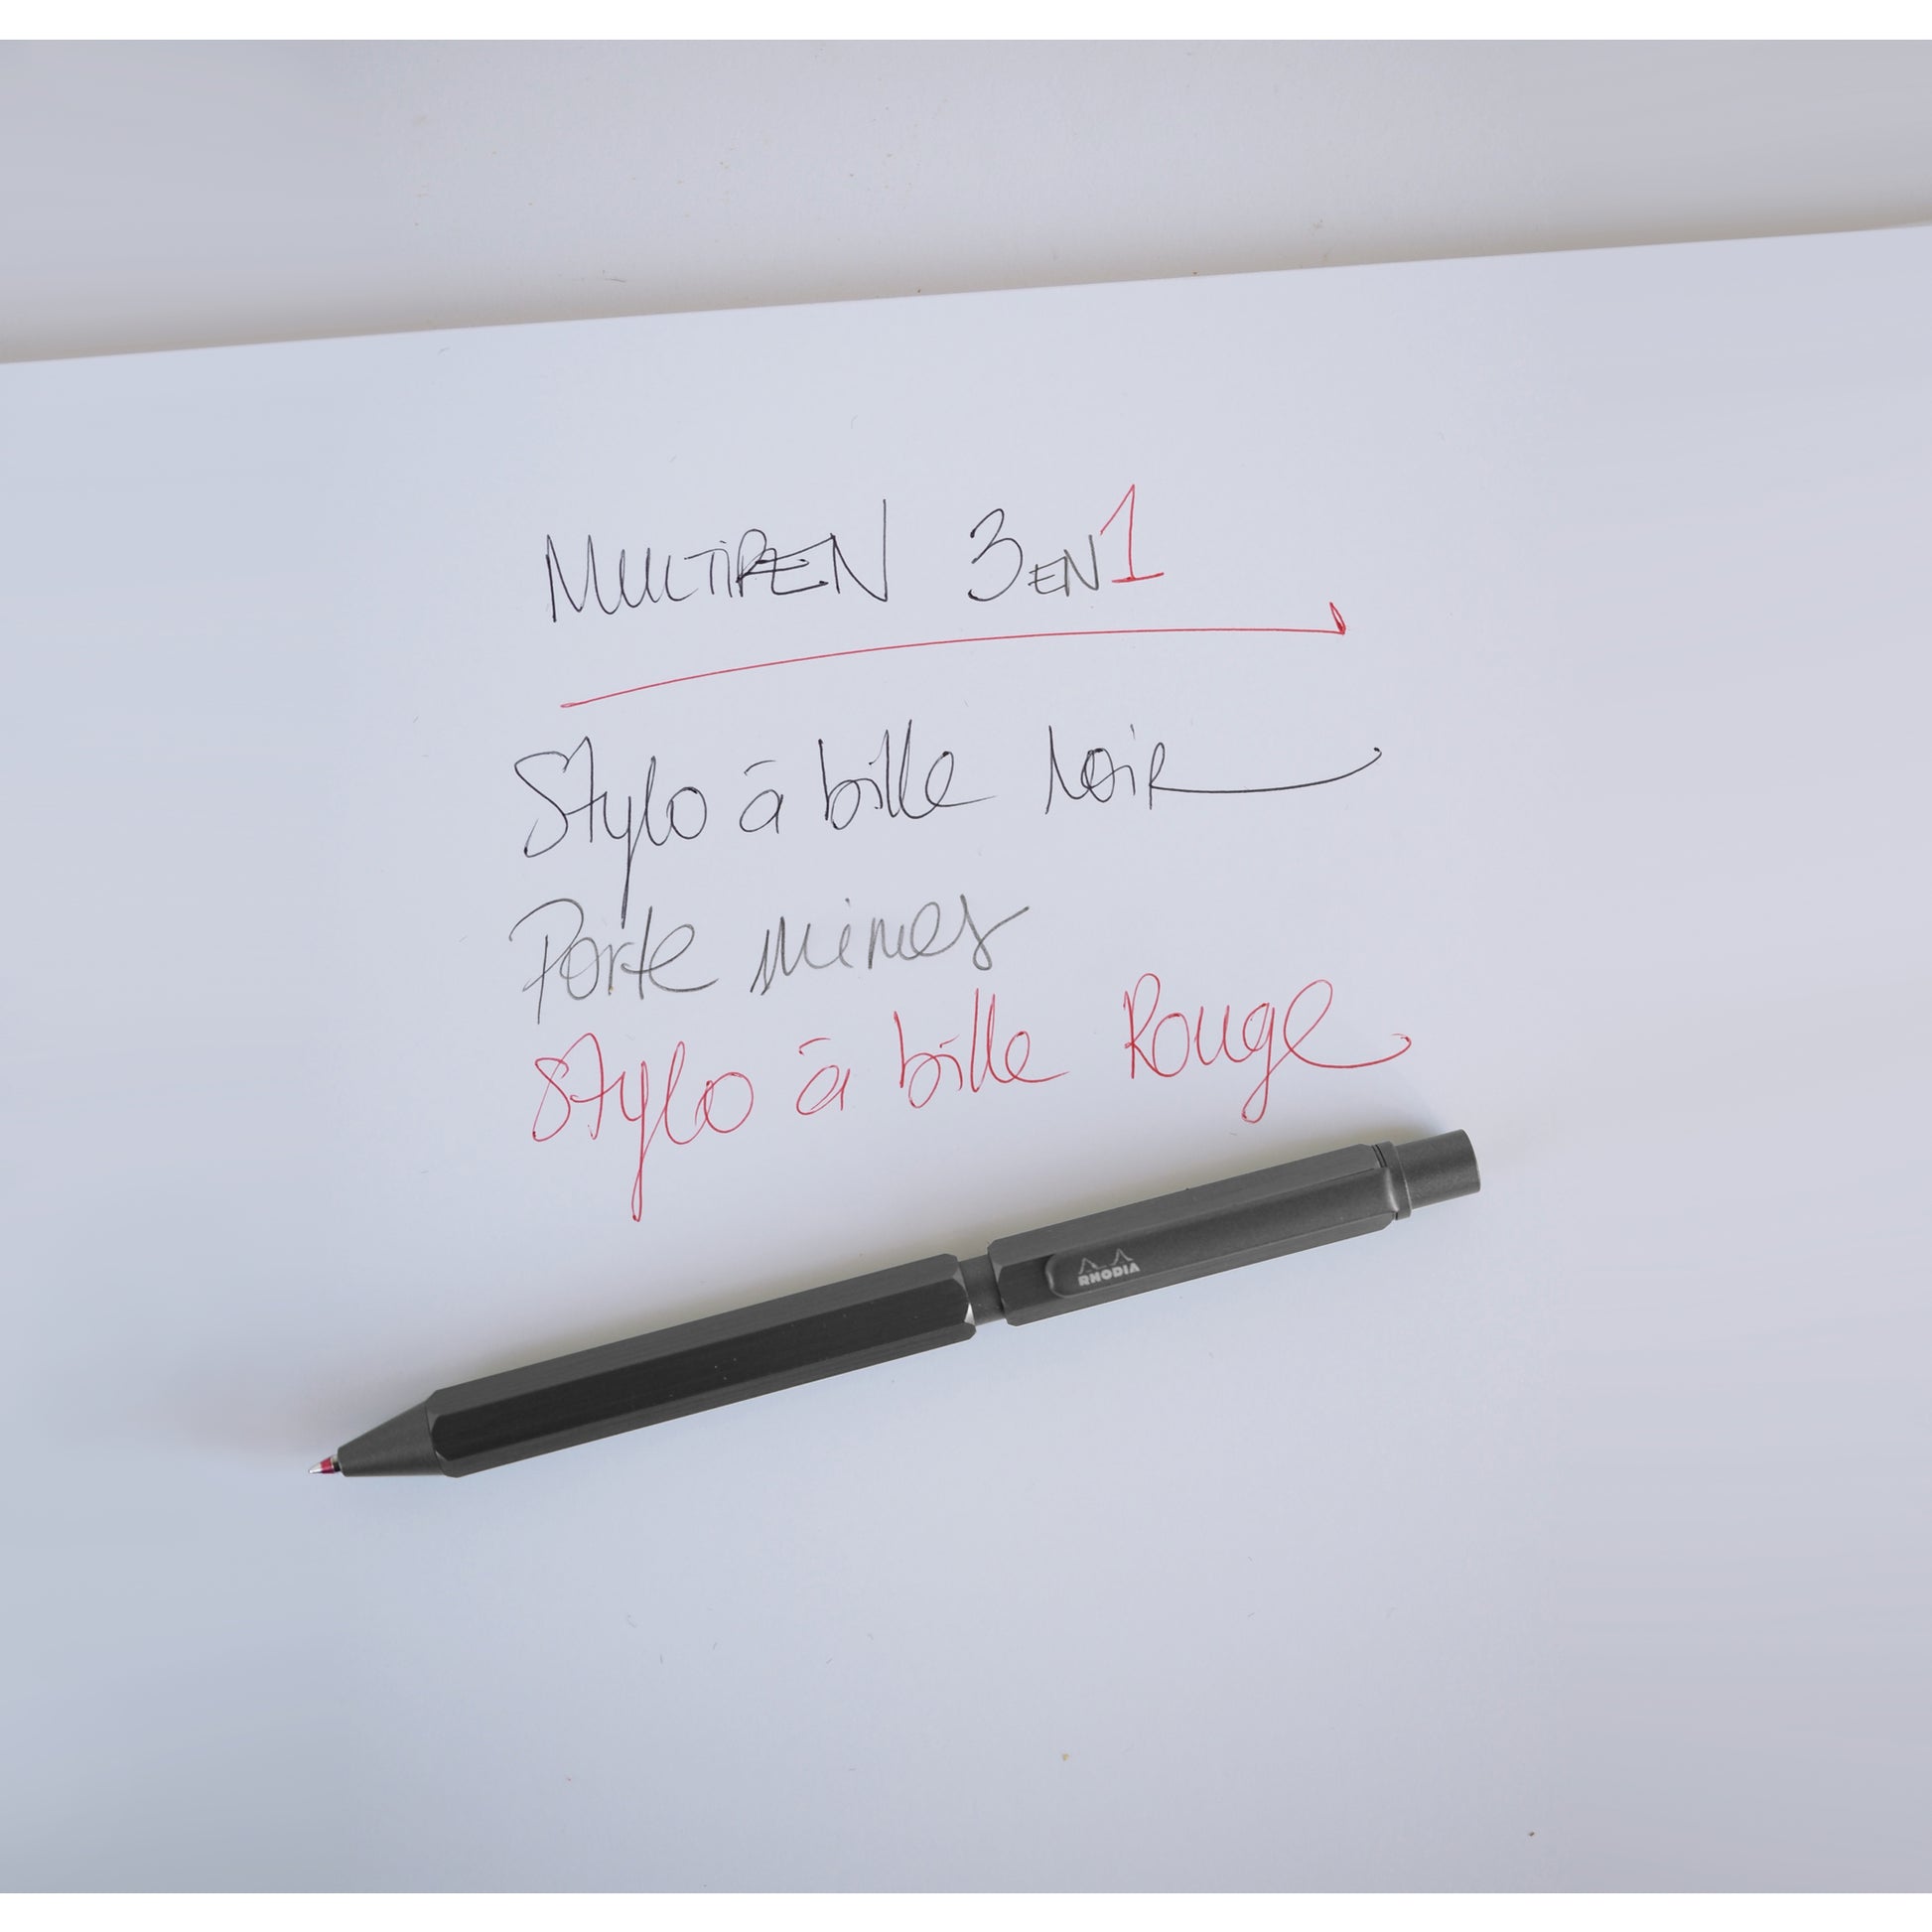 MULTIPEN 3 EN 1
Stylo à bille Noir
Porte mines
Stylo à bille Rouge
RHODIA